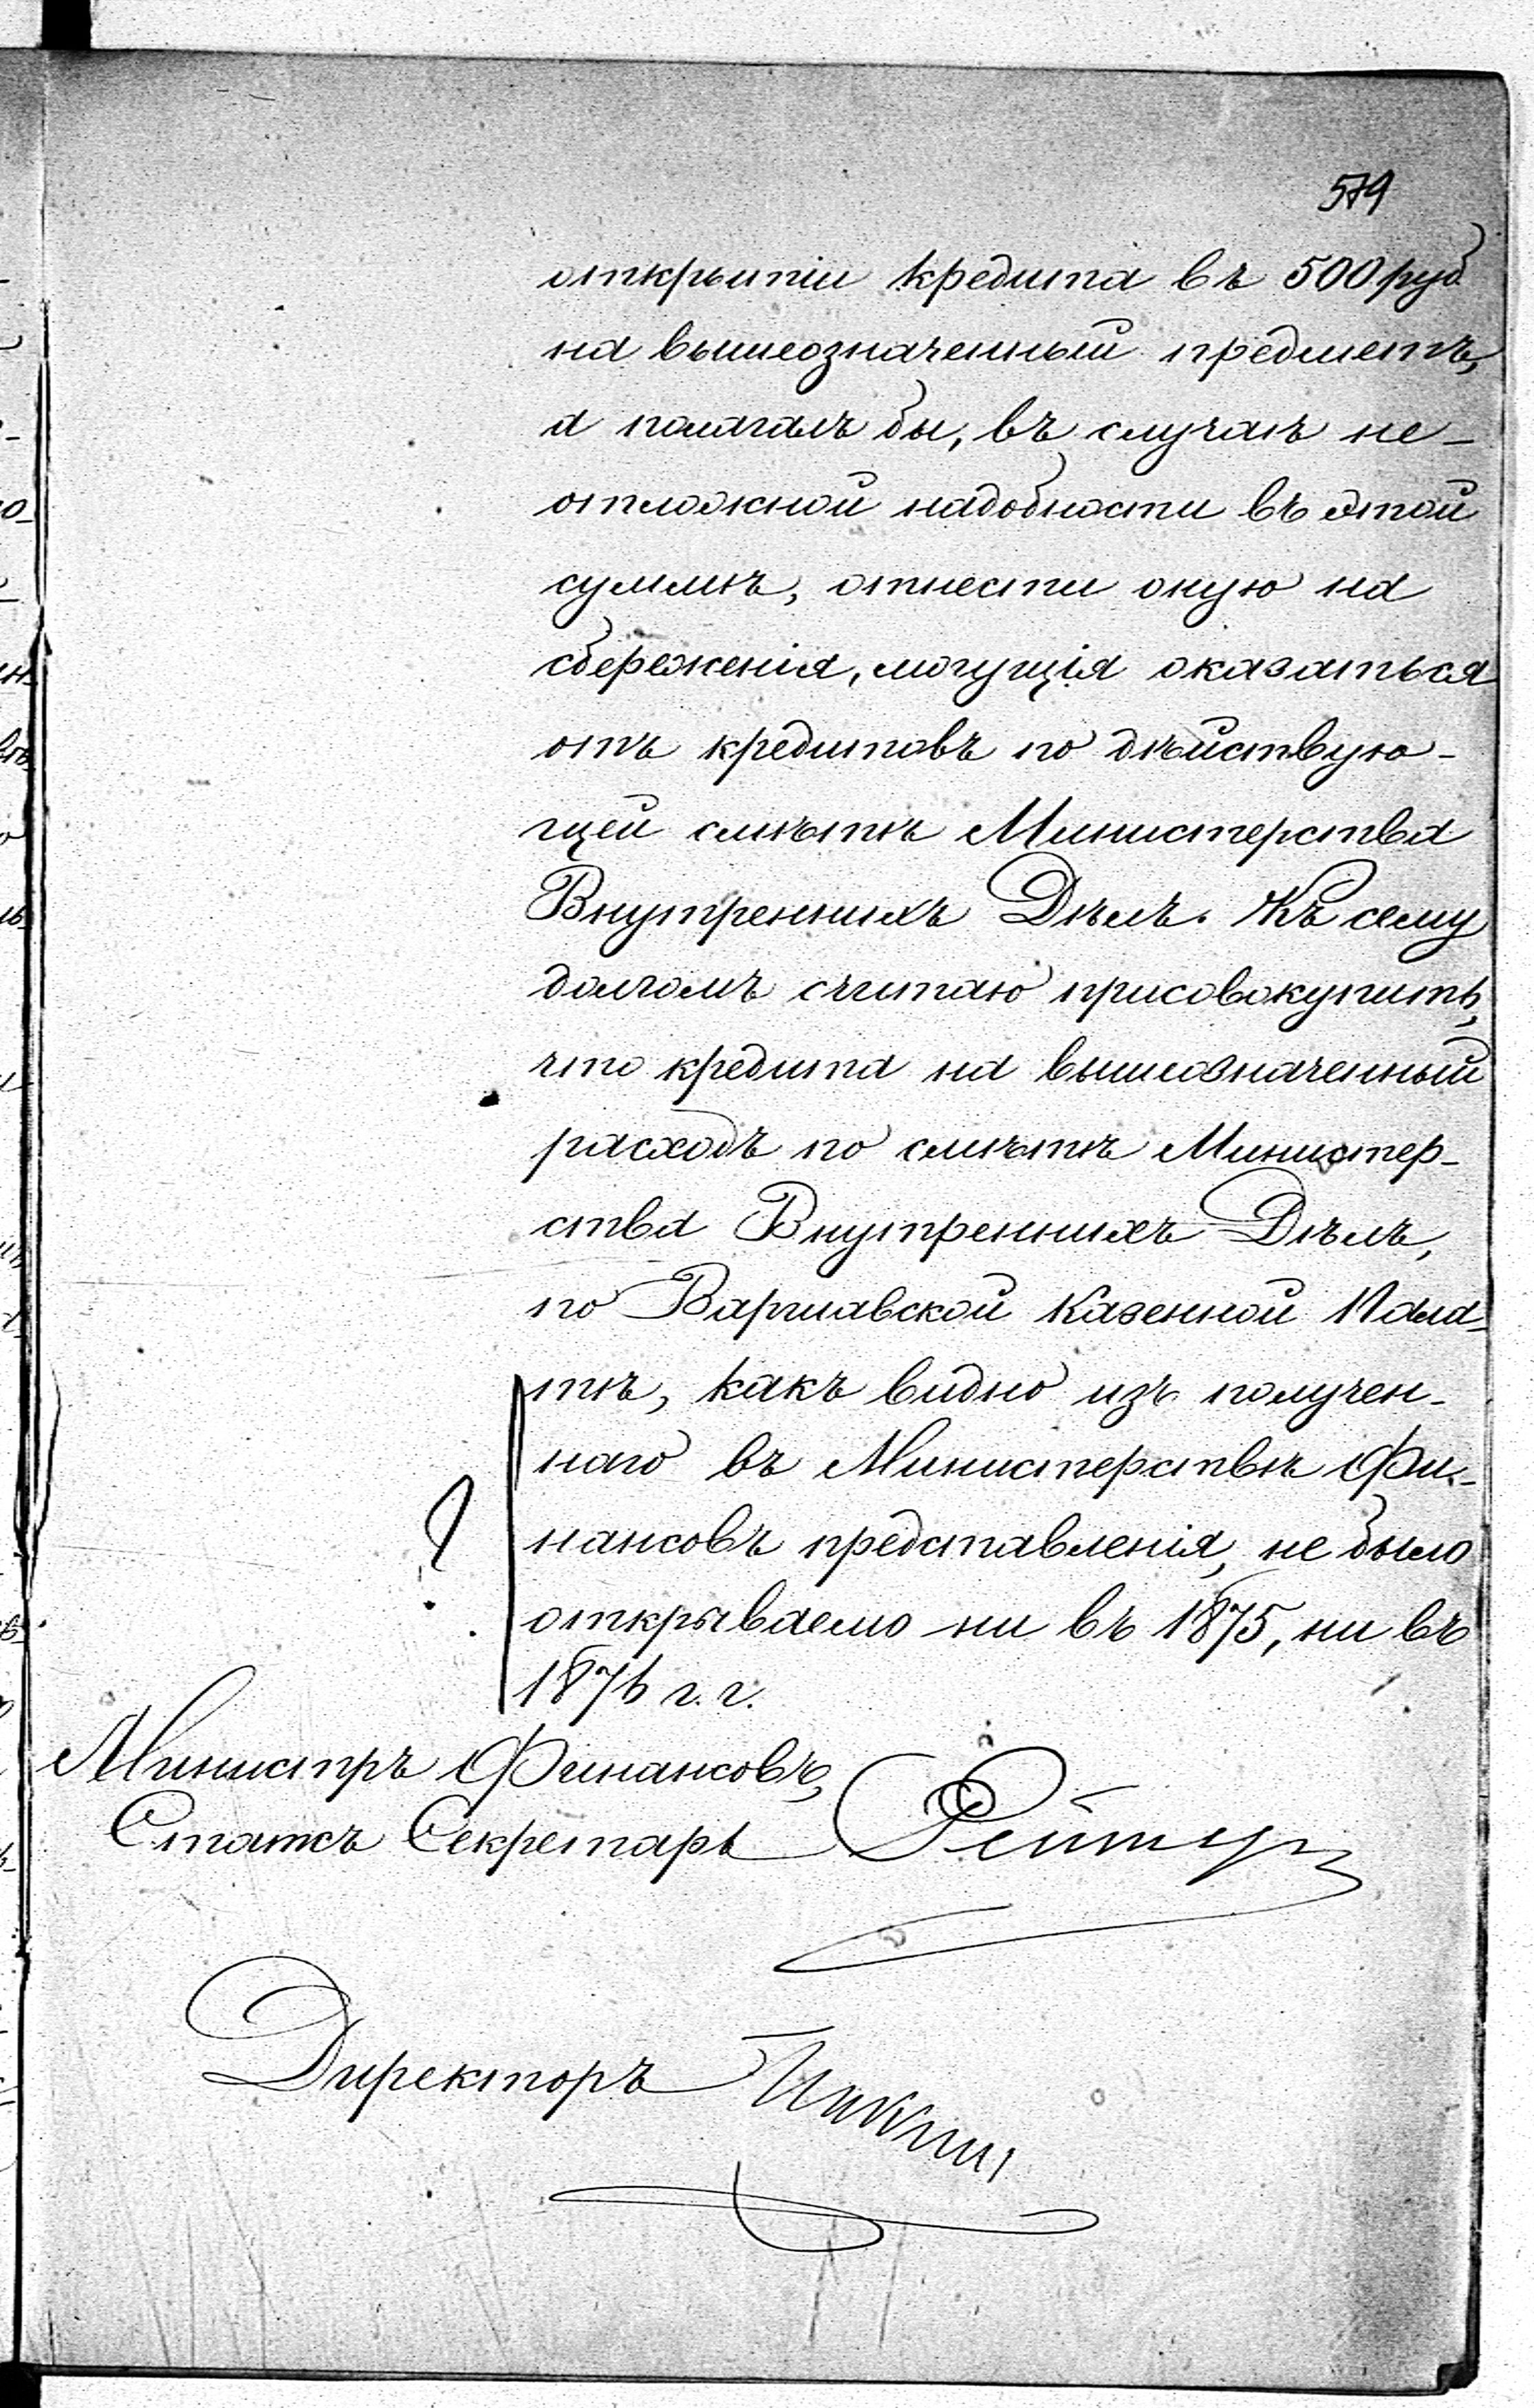 579
открытiи кредита въ 500 руб
на вышеозначенный предметъ,
а полагалъ бы, въ случаѣ не-
отложной надобности въ этой
суммѣ, отнести оную на
сбереженiя, могущiя оказаться
отъ кредитовъ по дѣйствую-
щей смѣтѣ Министерства
Внутреннихъ Дѣлъ. Къ сему
долгомъ считаю присовокупить,
что кредита на вышеозначенный
расходъ по смѣтѣ Министер-
ства Внутреннихъ Дѣлъ,
по Варшавской Казенной Пала-
тѣ, какъ видно изъ получен-
наго въ Министерствѣ Фи-
нансовъ представленiя, не было
открываемо ни въ 1875, ни въ
1876 г. г.
?
Министръ Финансовъ,
Статсъ Секретарь Рейтерн
Директоръ